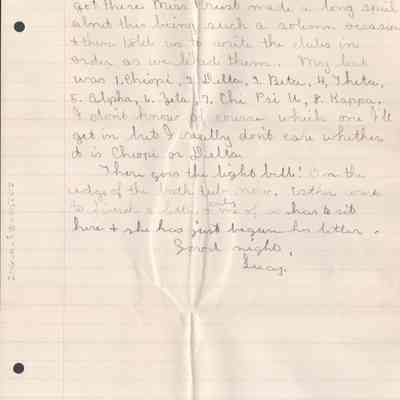 got there Miss Crist made a long spiel
about this being such a solemn occasion
& then told us to write the clubs in
order as we liked them. My list
was 1. Chiopi, 2. Delta, 3. Beta, 4. Theta,
5. Alpha, 6. Zeta, 7. Chi Psi U, 8. Kappa.
I don't know of course which one I'll
get in but I really don't care whether
it is Chiopi or Delta.
There goes the light bell! On the
edge of the bath tub now. Esther
a letter & only one of us has to sit
here & she has just begun her letter.
Good night,
Lucy.